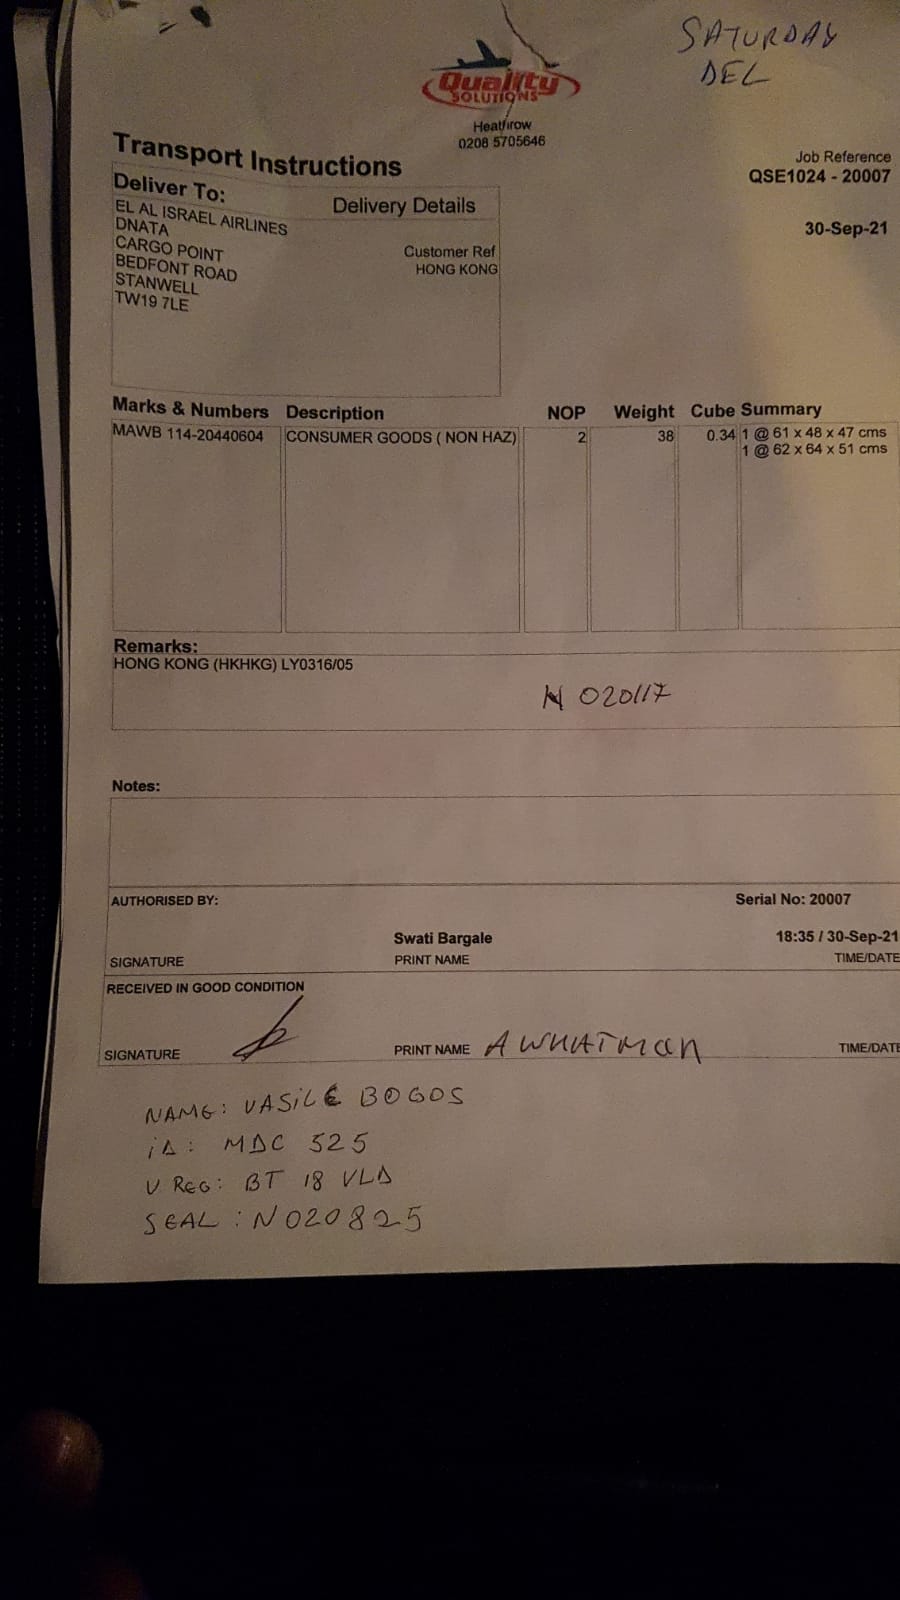 SATURDAY
DEL
Quality
SOLUTIONS
Heathrow
0208 5705646
Transport Instructions
Job Reference
QSE1024 - 20007
30-Sep-21
Deliver To:
EL AL ISRAEL AIRLINES
DNATA
CARGO POINT
BEDFONT ROAD
STANWELL
TW19 7LE
Delivery Details
Customer Ref
HONG KONG
Marks & Numbers Description NOP Weight Cube Summary
MAWB 114-20440604 CONSUMER GOODS ( NON HAZ) 2 38 0.34 1 @ 61 x 48 x 47 cms
1 @ 62 x 64 x 51 cms
Remarks:
HONG KONG (HKHKG) LY0316/05
N 020117
Notes:
AUTHORISED BY: Serial No: 20007
Swati Bargale 18:35 / 30-Sep-21
SIGNATURE PRINT NAME TIME/DATE
RECEIVED IN GOOD CONDITION
SIGNATURE PRINT NAME A WHATMAN TIME/DATE
NAME: VASILE BOGOS
iD: MDC 525
V REG: BT 18 VLD
SEAL: N020825